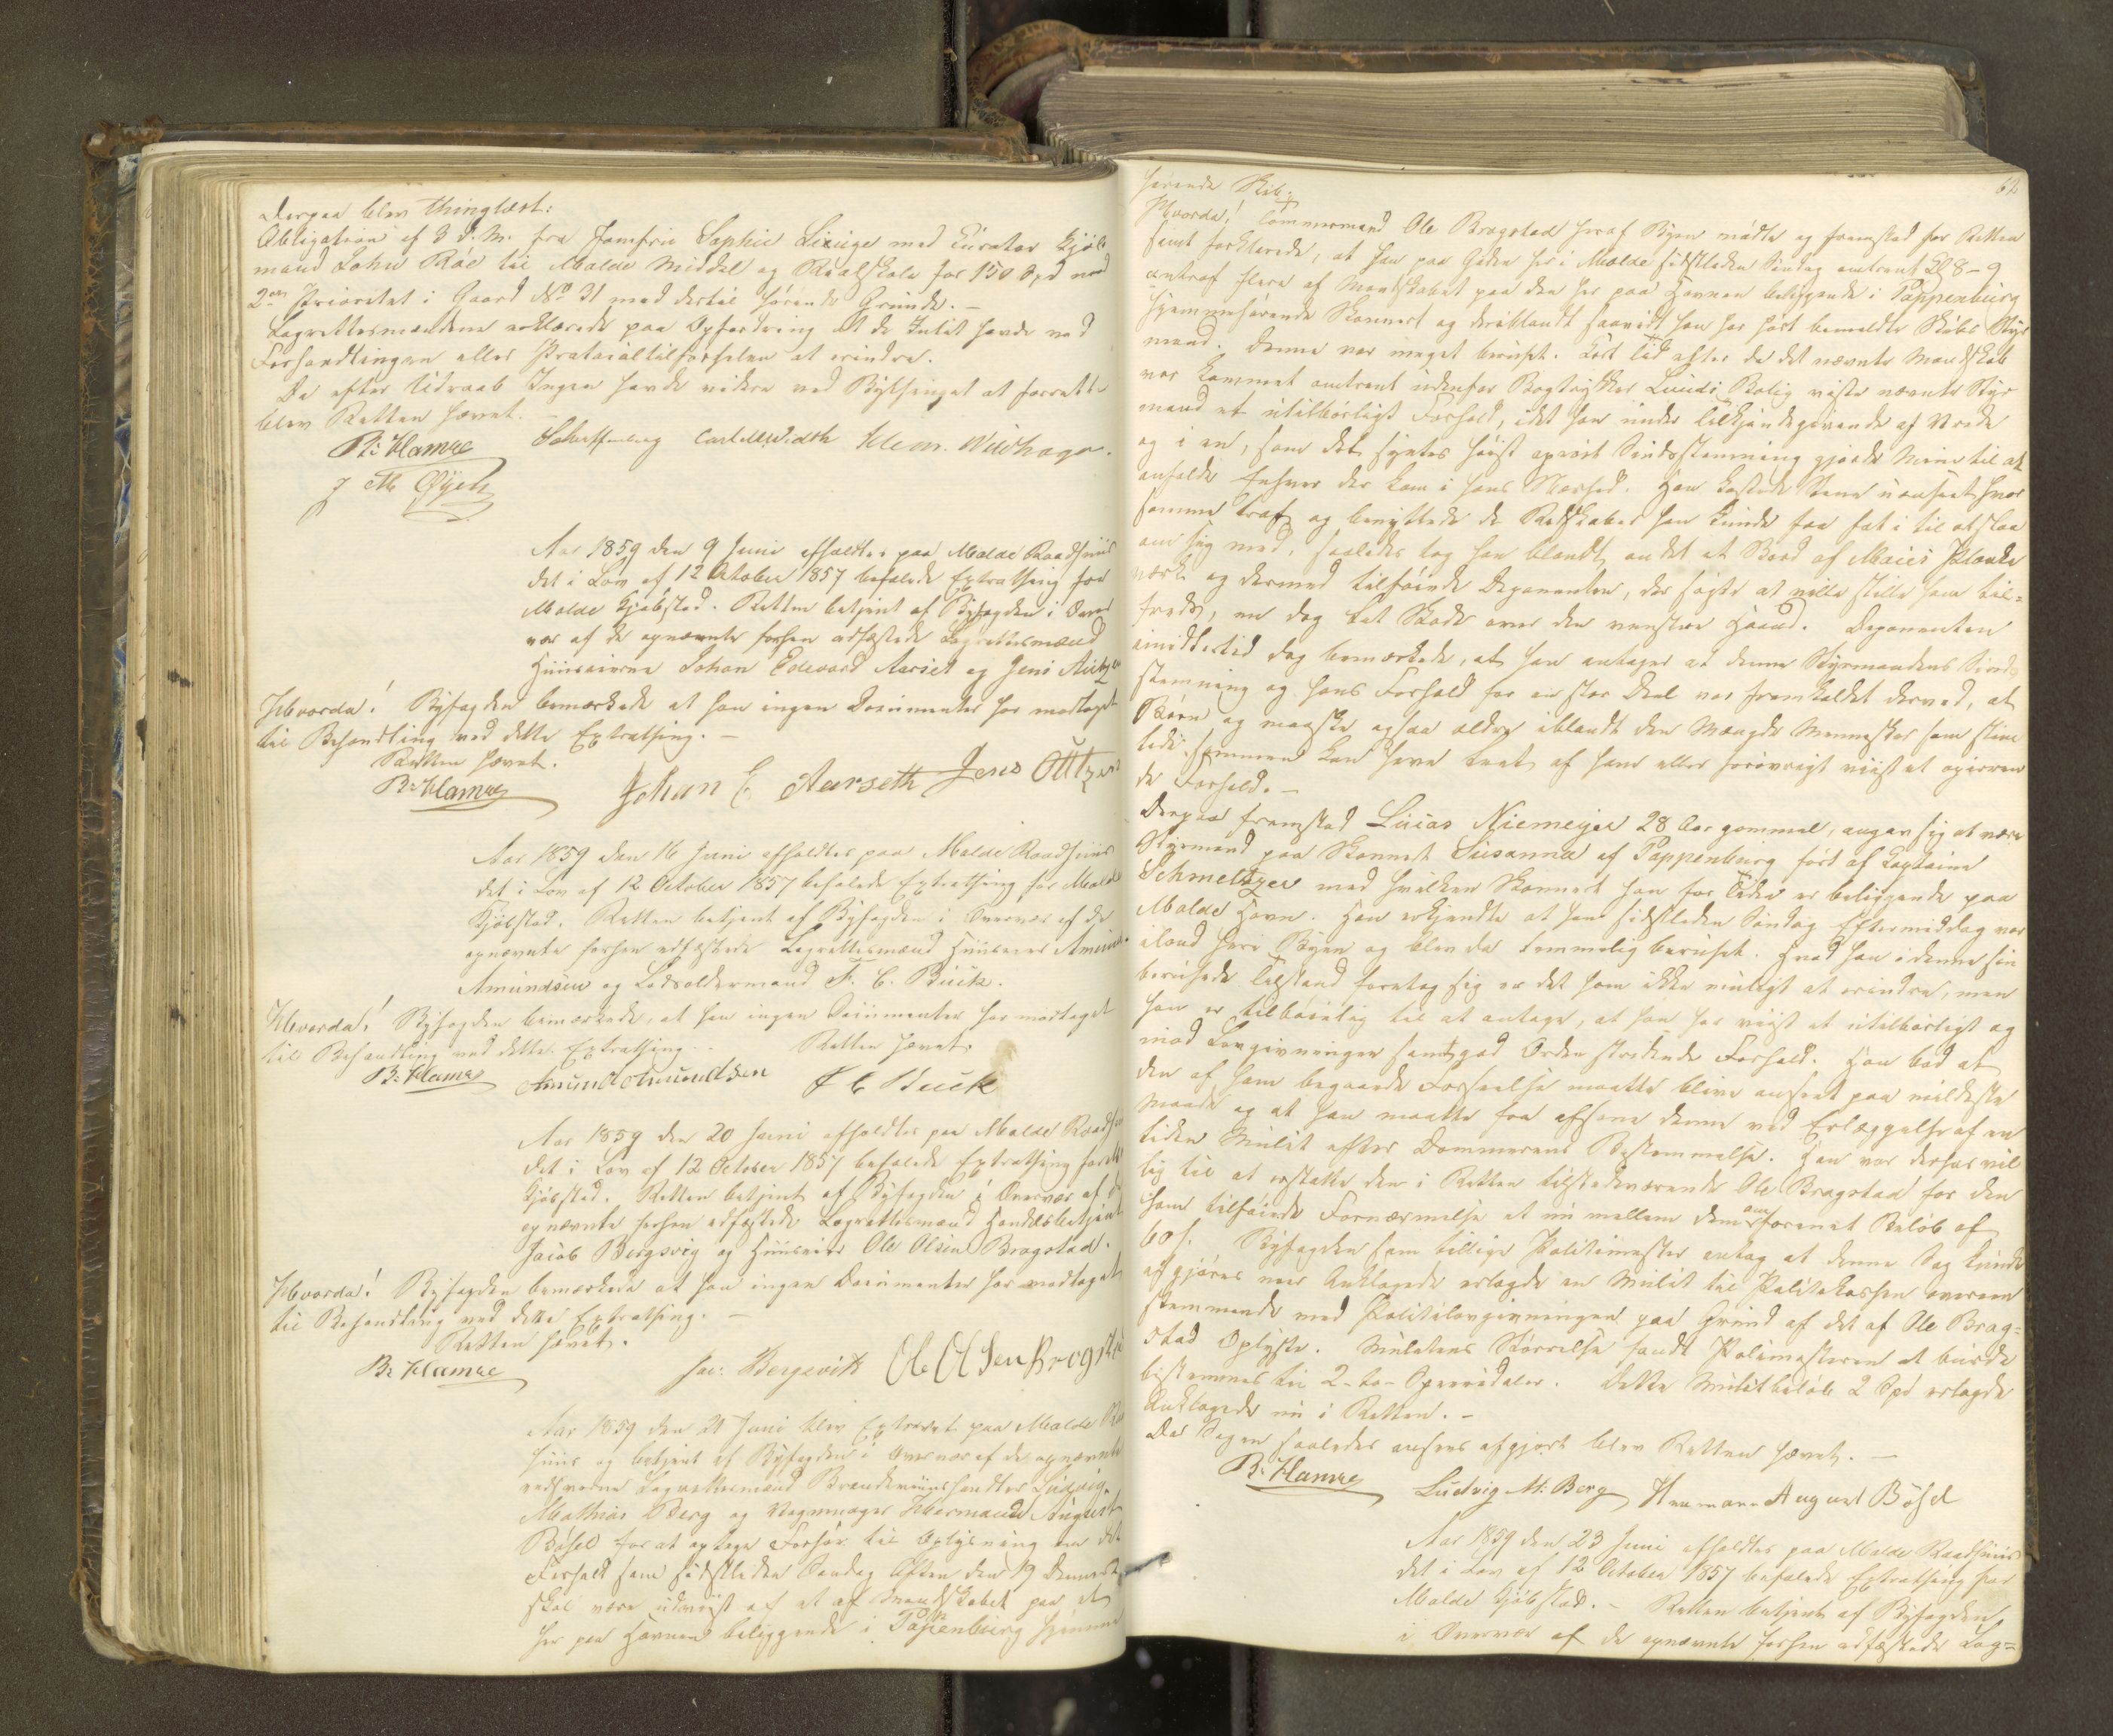 Derpaa blev thinglæst:
Obligation af 3 d. M. fra Jomfru Sophie Lixuge med Curator Kjøb
mand John Roe til Molde Middel og Realskole for 150 Spd med
2den Prioritet i Gaard No 31 med dertil hørende Grunde. -
Lagrettesmændene erklærede paa Opfordring at de Intet havde ved
Forhandlingen eller Protocoltilførselen at erindre.
Da efter Udraab Ingen havde videre ved Bythinget at forrette
blev Retten hævet.
B: Hamre Schulffenberg Carl Width Klem. Wiishagn.
J M Øyen
Aar 1859 den 9 Juni afholdtes paa Molde Raadhuus
det i Lov af 12 October 1857 befalede Extrathing for
Molde Kjøbsted. Retten betjent af Byfogden i Over
vær af de opnævnte forhen edfæstede Lagrettesmænd
Huuseierne Johan Edevard Aarset og Jens
Hvorda! Byfogden bemærkede at han ingen Documenter har modtaget
til Behandling ved dette Extrathing. -
Retten hævet.
B: Hamre Johan E Aarseth Jens
Aar 1859 den 16 Juni afholdtes paa Molde Raadhuus
det i Lov af 12 October 1857 befalede Extrathing for Molde
Kjøbsted. Retten betjent af Byfogden i Overvær af de
opnævnte forhen edfæstede Lagrettesmænd Huuseier Amund
Amundsen og Lodsoldermand F. C. Buck.
Hvorda! Byfogden bemærkede, at han ingen Documenter har modtaget
til Behandling ved dette Extrathing. - Retten hævet.
B: Hamre Amund Amundsen F C Buck
Aar 1859 den 20 Juni afholdtes paa Molde Raadhu
det i Lov af 12 October 1857 befalede Extrathing for
Kjøbsted. Retten betjent af Byfogden i Overvær af de
opnævnte forhen edfæstede Lagrettesmænd Handelsbetjent
Jacob Bergsvig og Huuseier Ole Olsen Bragstad.
Hvorda! Byfogden bemærkede at han ingen Documenter har modtaget
til Behandling ved dette Extrathing. -
Retten hævet.
B: Hamre Jac: Bergsvik Ole Olsen Brogsta
Aar 1859 den 21 Juni blev Extraret paa Molde Raa
huus og betjent af Byfogden i Overvær af de opnævnte
edsvorne Lagrettesmænd Brændeviinshandler Ludvig
Mathias Berg og Vognmager Hermand August
Bøhsel for at optage Forhør til Oplysning om det
Forhold som sidstleden Søndag Aften den 19 dennes
skal være udviist af et af Mandskabet paa et
her paa Havnen beliggende i Pappenburg hjemme
62
hørende Skib.
Hvorda! Tømmermand Ole Bragstad her af Byen mødte og fremstod for Retten
samt forklarede, at han paa Gaden her i Molde sidstleden Søndag omtrent Kl 8-9
antraf flere af Mandskabet paa den her paa Havnen beliggende i Pappenburg
hjemmehørende Skonnert og deriblandt saavidt han har hørt bemeldte Skibs Styr
mand. Denne var meget beruset. Kort Tid efter da det nævnte Mandskab
var kommet omtrent udenfor Bogtrykker Lunds Bolig viste nævnte Styr
mand et utilbørligt Forhold, idet han under Tilkjendegivende af Vrede
og i en, som det syntes høist oprørt Sindsstemning gjorde Mine til at
anfalde Enhver der kom i hans Nærhed. Han kastede Stene uanseet hvor
samme traf og benyttede de Redskaber han kunde faa fat i til at slaa
om sig med, saaledes tog han blandt andet et Bord af Planke
værk og dermed tilføiede Deponenten, der søgte at ville stille ham til=
freds, en dog let Skade over den venstre Haand. Deponenten
imidlertid dog bemærkede, at han antager at denne Styrmandens Sinds
stemning og hans Forhold for en stor Deel var fremkaldt derved, at
Børn og maaske ogsaa ældre iblandt den Mængde Mennesker som stim
lede sammen kan have leet af ham eller forøvrigt viist et opirren
de Forhold. -
Derpaa fremstod Lucas Niemeyer 28 Aar gammel, angav sig at være
Styrmand paa Skonnert Susanna af Pappenburg ført af Captain
Schmeltzer med hvilken Skonnert han for Tiden er beliggende paa
Molde Havn. Han erkjendte at han sidstleden Søndag Eftermiddag var
iland her i Byen og blev da temmelig beruset. Hvad han i denne sin
berusede Tilstand foretog sig er det ham ikke muligt at erindre, men
han er tilbøielig til at antage, at han har viist et utilbørligt og
mod Lovgivningen samt god Orden stridende Forhold. Han bad at
den af ham begaaede Forseelse maatte blive anseet paa mildeste
Maade og at han maatte faa afsone denne ved Erlæggelse af en
liden Mulct efter Dommerens Bestemmelse. Han var derhos vil
lig til at erstatte den i Retten tilstedeværende Ole Bragstad for den
ham tilføiede Fornærmelse et nu mellem dem omforenet Beløb af
60 s. Byfogden som tillige Politimester antog at denne Sag kunde
afgjøres naar Anklagede erlagde en Mulct til Politikassen overeen
stemmende med Politilovgivningen paa Grund af det af Ole Brag=
stad Oplyste. Mulctens Størrelse fandt Politimesteren at burde
bestemmes til 2 - to - Speciedaler. Dette Mulctbeløb 2 Spd erlagde
Anklagede nu i Retten. -
Da Sagen saaledes ansees afgjort blev Retten hævet. -
B: Hamre Ludvig M: Berg Hermann August Böhsel
Aar 1859 den 23 Juni afholdtes paa Molde Raadhuus
det i Lov af 12 October 1857 befalede Extrathing for
Molde Kjøbsted. - Retten betjent af Byfogden
i Overvær af de opnævnte forhen edfæstede Lag=